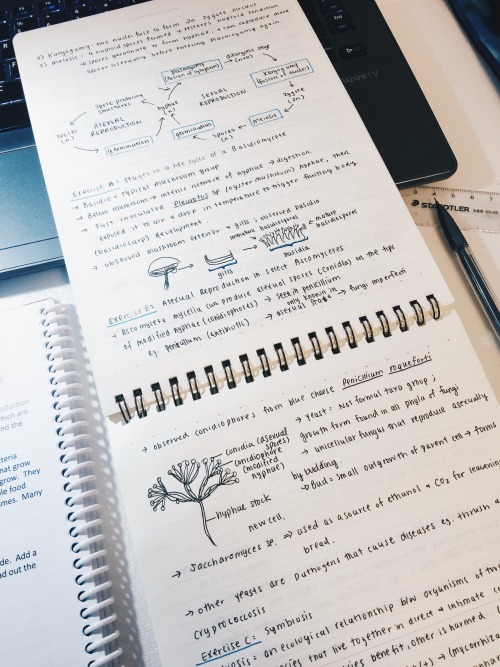 2) Karyogamy: two nuclei fuse to form 2n zygote nucleus
3) Meiosis: 4 haploid spores formed → restores haploid condition
↳ spores germinate to form hyphae & can reproduce more
spores asexually before entering plasmogamy again.
Plasmogamy
(fusion of cytoplasm)
→ dikaryotic stage
(n+n)
Karyogamy
(fusion of nuclei)
zygote
(2n)
meiosis
spores
(n)
germination
hyphae
(n)
SEXUAL
REPRODUCTION
spore-producing
structures
ASEXUAL
REPRODUCTION
spores
(n)
germination
Aspire V
STAEDTLER
Exercise A: Stages in a life cycle of a Basidiomycete
→ Basidio = typical mushroom group
→ Below mushroom → intense network of hyphae → digestion.
→ First inoculated Pleurotus sp (oyster mushroom) hyphae, then
exposed it to air & drop in temperature to trigger fruiting body
(basidiocarp) development.
→ observed mushroom exterior → gills; observed basidia
immature
basidiospores
← mature
basidiospores
gills
basidia
Exercise B: Asexual Reproduction in select Ascomycetes
→ Ascomycota mycelia can produce asexual spores (conidia) on the tips
of modified hyphae (conidiophores) → seen in penicillium
eg. penicillium (antibiotic)
only known in
asexual state
→ fungi imperfecti
→ observed conidiophores from blue cheese Penicillium roqueforti
conidia (asexual
spores)
conidiophore
(modified
hyphae)
hyphae stock
→ yeast: not formal taxo group;
growth form found in all phyla of fungi
→ unicellular fungus that reproduce asexually
by budding.
→ Bud = small outgrowth of parent cell → forms
new cell.
→ Saccharomyces sp. ⇒ used as a source of ethanol & CO2 for leavening
bread.
→ other yeasts are pathogens that cause diseases eg. thrush
Cryptococcosis
Exercise C: Symbiosis
an ecological relationship b/w organisms of
that live together in direct & intimate
benefit, other is harmed.
(mycorrhiza
oduction
hich are
nd the
teria
hat grow
grow. They
le food
mes. Many
de. Add a
ad out the